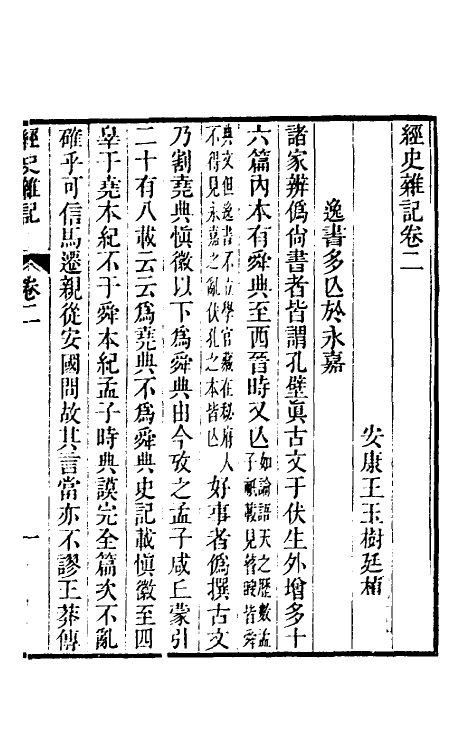 經史雜記卷二
安康王玉樹廷楨
逸書多亾於永嘉
諸家辨僞尚書者皆謂孔壁眞古文于伏生外增多十
六篇內本有舜典至西晉時又亾如論語天之歷數孟子祗載見瞽瞍皆舜
典文但逸書不立學官藏在秘府人不得見永嘉之亂伏孔之本皆亾好事者僞撰古文
乃割堯典愼徽以下爲舜典由今攷之孟子咸丘蒙引
二十有八載云云爲堯典不爲舜典史記載愼徽至四
辠于堯本紀不于舜本紀孟子時典謨完全篇次不亂
確乎可信馬遷親從安國問故其言當亦不謬王莽傳
經史雜記
卷二
一